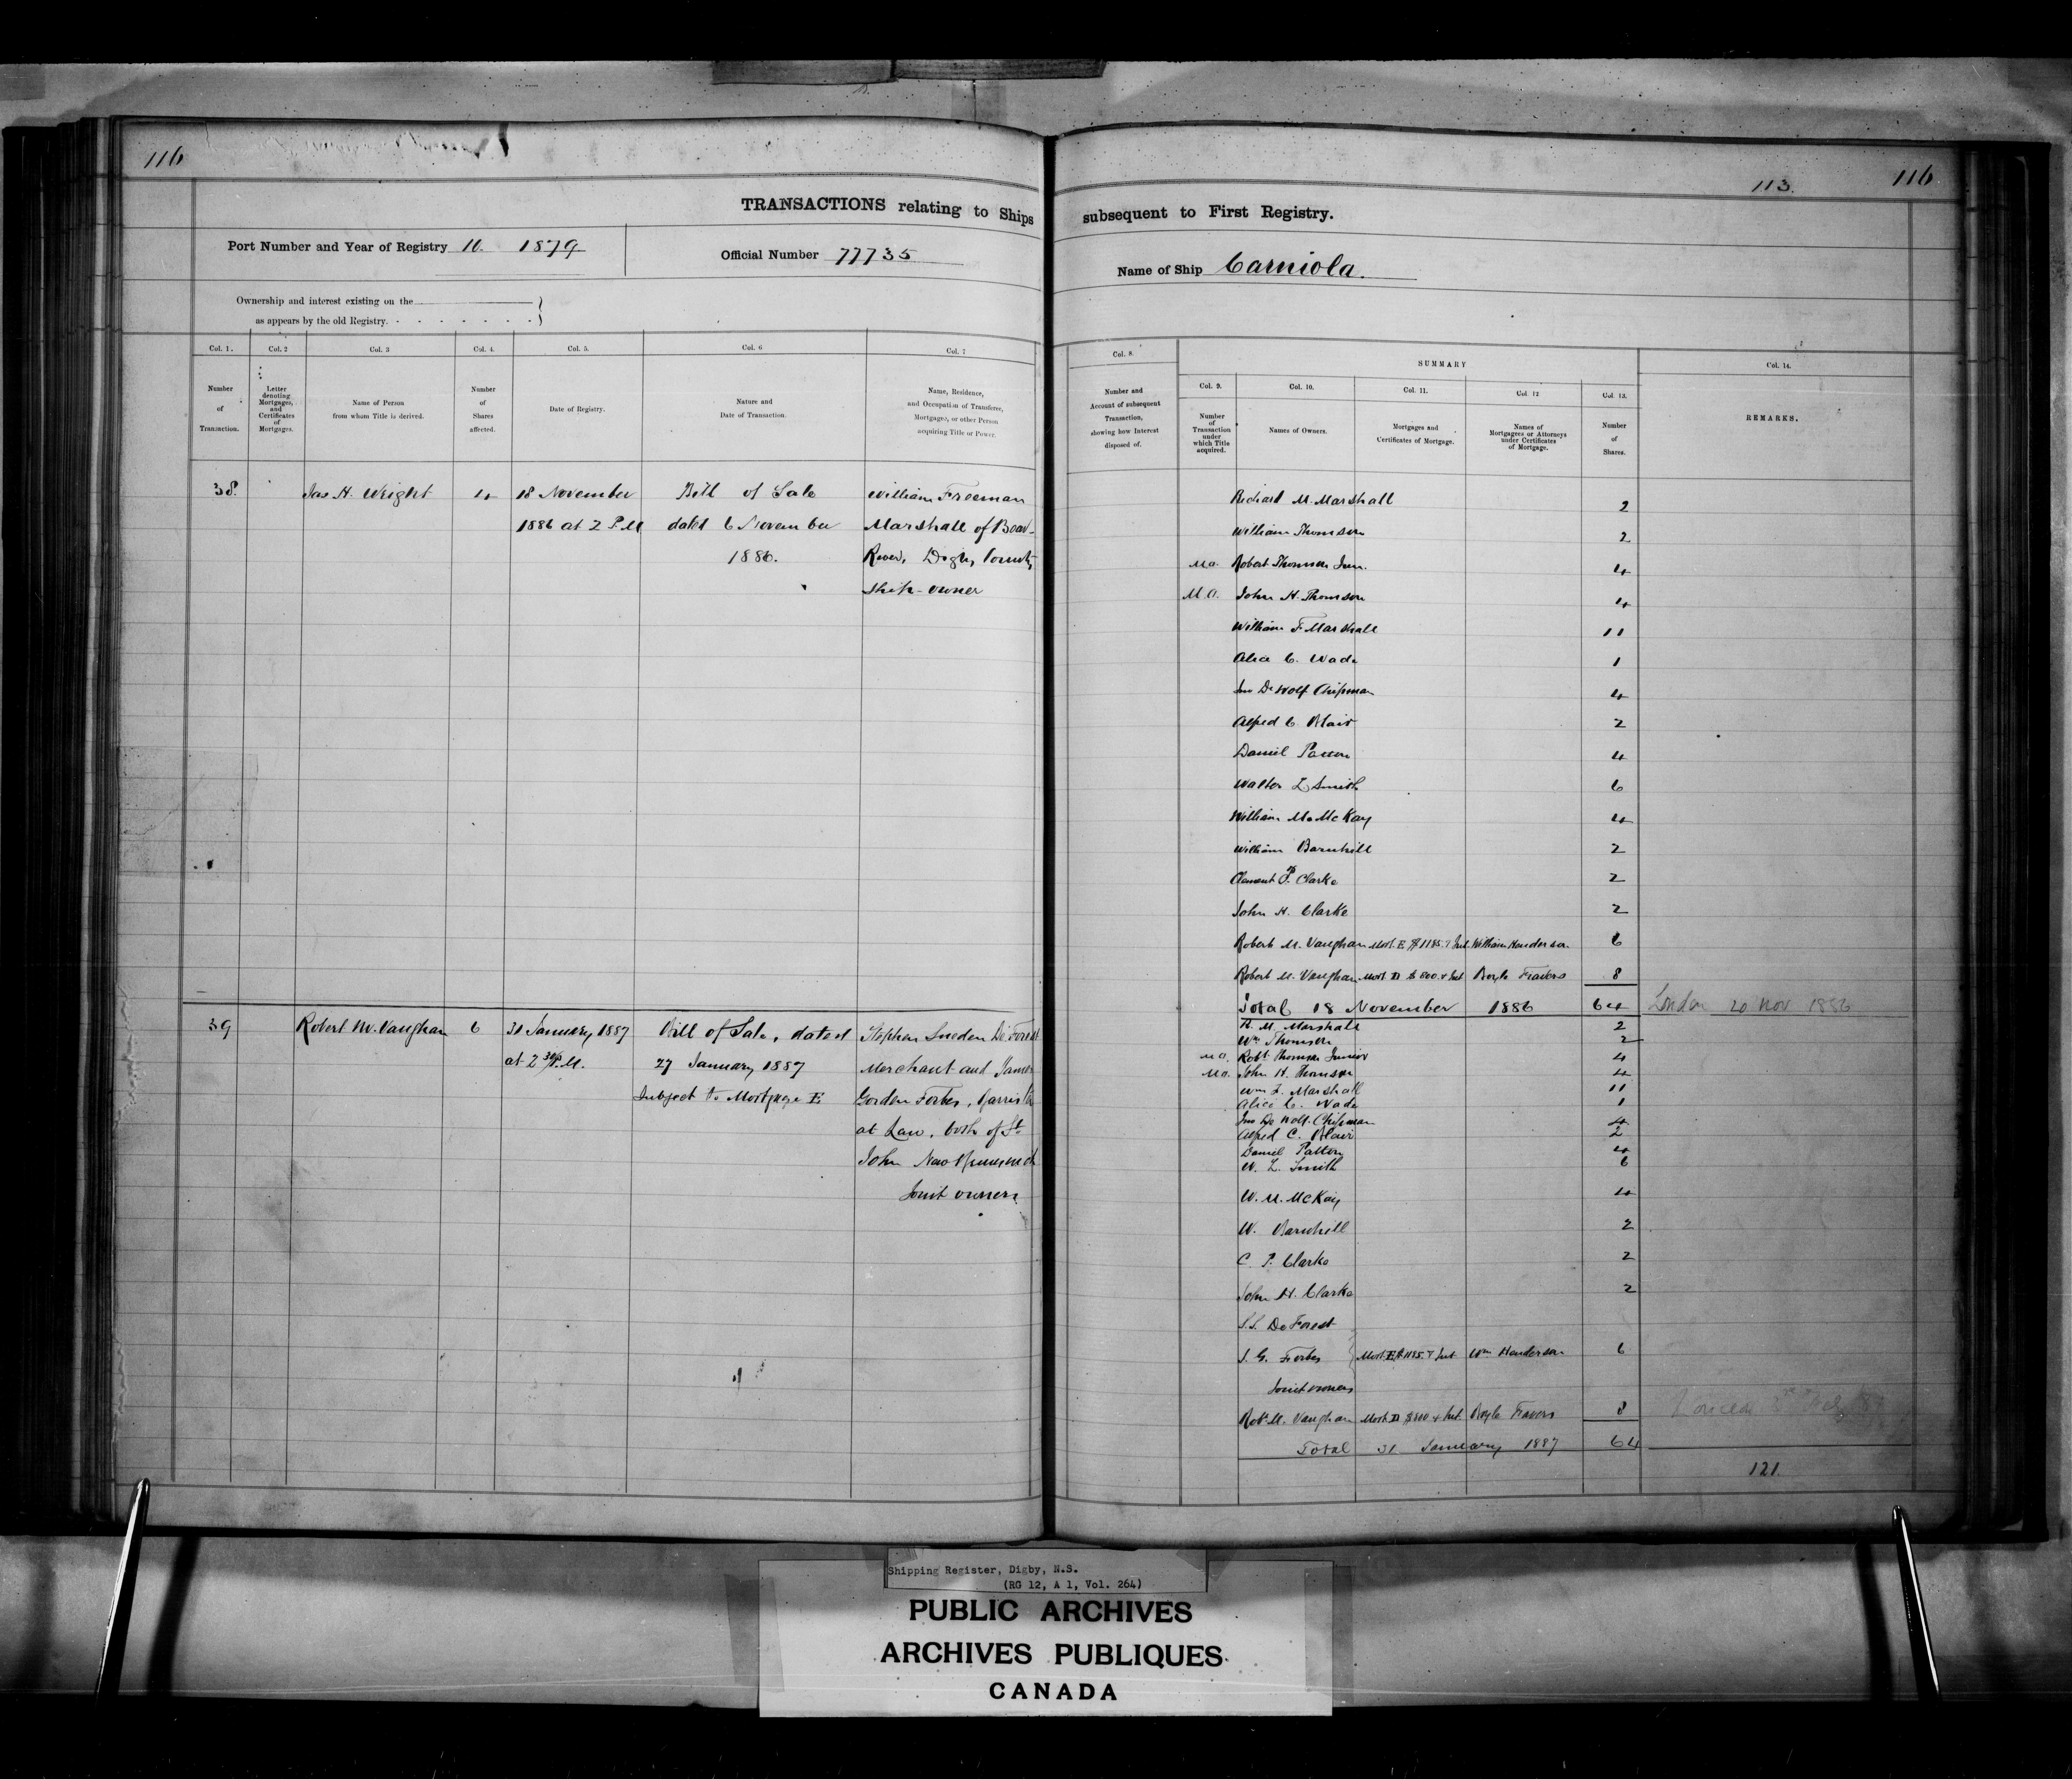 116
TRANSACTIONS relating to Ships
Port Number and Year of Registry 10. 1879
Official Number 77735
Ownership and interest existing on the
as appears by the old Registry.
Col. 1. Col. 2 Col. 3 Col. 4. Col. 5. Col. 6 Col. 7
Number of Transaction.
Letter denoting Mortgages, and Certificates of Mortgages.
Name of Person from whom Title is derived.
Number of Shares affected.
Date of Registry.
Nature and Date of Transaction.
Name, Residence, and Occupation of Transferee, Mortgagee, or other Person acquiring Title or Power.
38. Jas H. Wright 4 18 November Bill of Sale William Freeman
1886 at 2 P.M dated 6 November Marshall of Bear
1886. River, Digby County
Ship-owner
39 Robert M. Vaughan 6 31 January 1887 Bill of Sale, dated Stephen Sneden De Forest
at 2 30/ P.M. 27 January 1887 Merchant and James
Subject to Mortgage E Gordon Forbes, Barrister
at Law, both of St
John New Brunswick
Joint owners
113. 116
subsequent to First Registry.
Name of Ship Carniola.
Col. 8. SUMMARY Col. 14.
Number and Account of subsequent Transaction, showing how Interest disposed of.
Col. 9. Col. 10. Col. 11. Col. 12 Col. 13.
Number of Transaction under which Title acquired.
Names of Owners.
Mortgages and Certificates of Mortgage.
Names of Mortgagees or Attorneys under Certificates of Mortgage.
Number of Shares.
REMARKS.
Richard M. Marshall 2
William Thomson 2
M.O. Robert Thomson Jun. 4
M.O. John H. Thomson 4
William F. Marshall 11
Alice C. Wade 1
Jno De Wolf Chipman 4
Alfred C. Blair 2
Daniel Patton 4
Walter L Smith 6
William M. McKay 4
William Barnhill 2
Clement P. Clarke 2
John H. Clarke 2
Robert M. Vaughan Mort. E $1185.+ Int. William Henderson 6
Robert M. Vaughan Mort D $800.+ Int Boyle Travers 8
Total 18 November 1886 64 London 20 Nov 1886
R. M. Marshall 2
Wm Thomson 2
M.O. Robt Thomson Junior 4
M.O. John H. Thomson 4
Wm F. Marshall 11
Alice C. Wade 1
Jno De Wolf Chipman 4
Alfred C. Blair 2
Daniel Patton 4
W. L. Smith 6
W. M. McKay 4
W. Barnhill 2
C. P. Clarke 2
John H. Clarke 2
S. S. De Forest
J. G. Forbes Mort. E $1185.+ Int Wm Henderson 6
Joint owners
Robt M. Vaughan Mort. D $800 + Int Boyle Travers 8
Total 31 January 1887 64
121.
Shipping Register, Digby, N.S.
(RG 12, A 1, Vol. 264)
PUBLIC ARCHIVES
ARCHIVES PUBLIQUES
CANADA